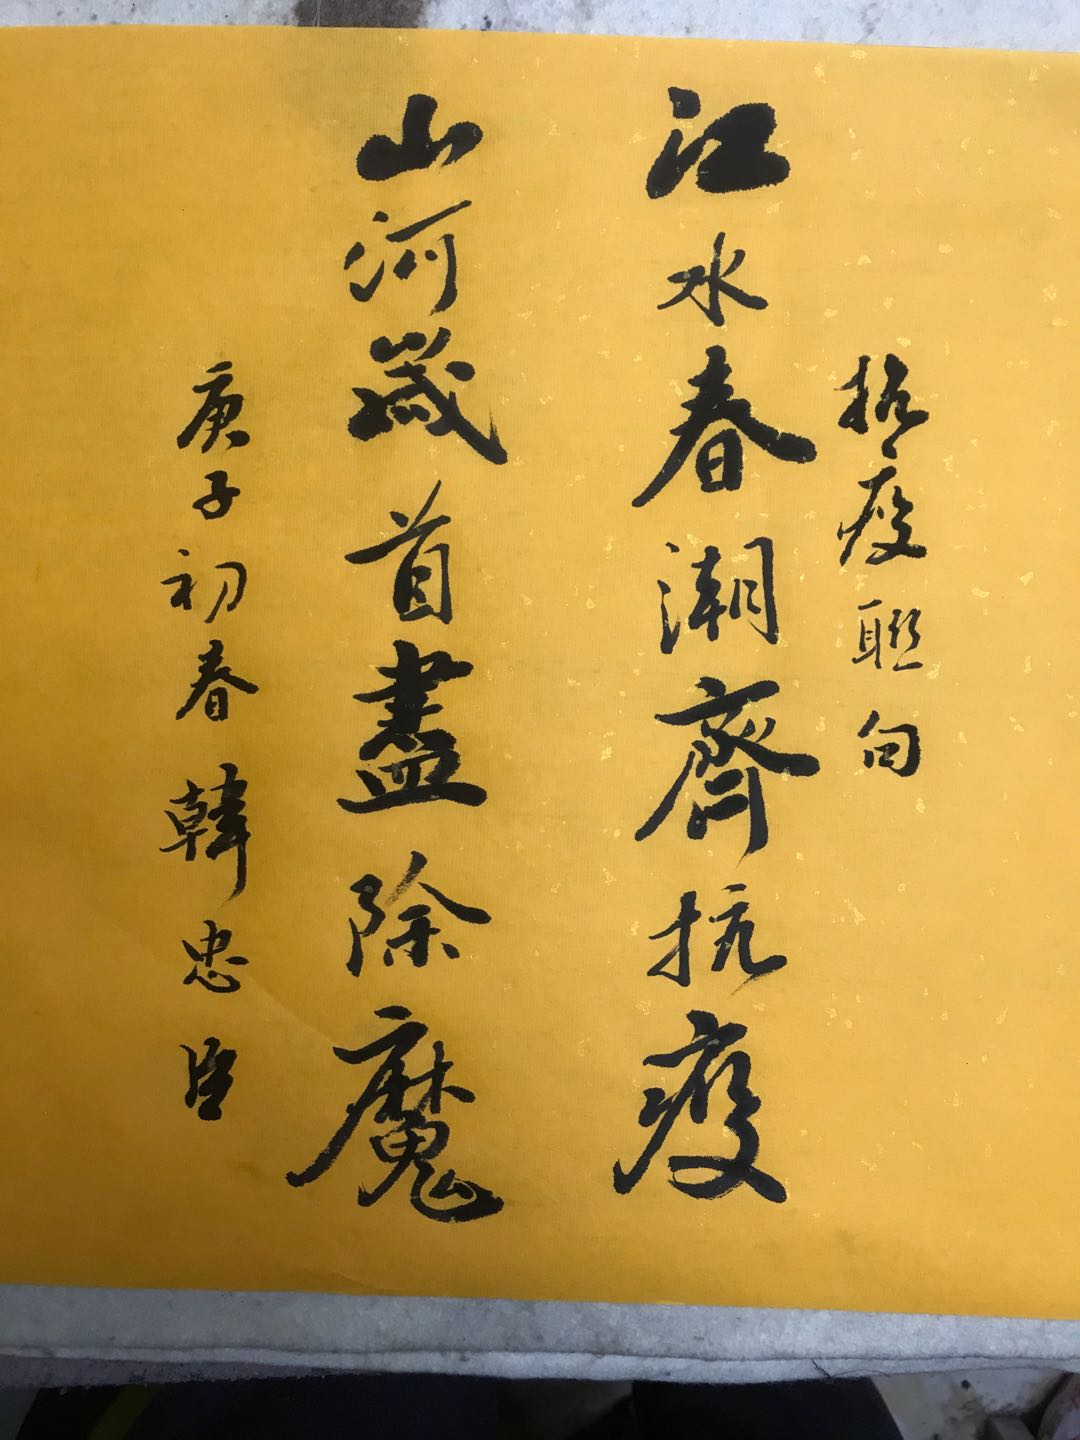 抗疫联句
江水春潮齊抗疫
山河歲首盡除魔
庚子初春 韓忠臣